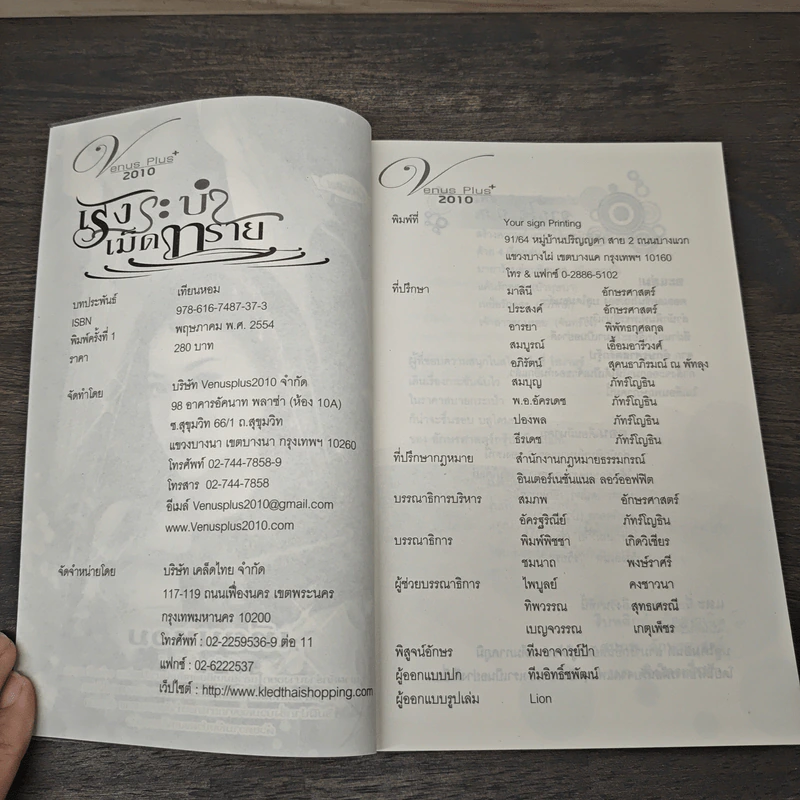 Venus Plus+
2010
เริงระบำ
เม็ดทราย
บทประพันธ์ เทียนหอม
ISBN 978-616-7487-37-3
พิมพ์ครั้งที่ 1 พฤษภาคม พ.ศ. 2554
ราคา 280 บาท
จัดทำโดย บริษัท Venusplus2010 จำกัด
98 อาคารอัคนาท พลาซ่า (ห้อง 10A)
ซ.สุขุมวิท 66/1 ถ.สุขุมวิท
แขวงบางนา เขตบางนา กรุงเทพฯ 10260
โทรศัพท์ 02-744-7858-9
โทรสาร 02-744-7858
อีเมล์ Venusplus2010@gmail.com
www.Venusplus2010.com
จัดจำหน่ายโดย บริษัท เคล็ดไทย จำกัด
117-119 ถนนเฟื่องนคร เขตพระนคร
กรุงเทพมหานคร 10200
โทรศัพท์ : 02-2259536-9 ต่อ 11
แฟกซ์ : 02-6222537
เว็ปไซต์ : http://www.kledthaishopping.com
Venus Plus+
2010
พิมพ์ที่ Your sign Printing
91/64 หมู่บ้านปริญญดา สาย 2 ถนนบางแวก
แขวงบางไผ่ เขตบางแค กรุงเทพฯ 10160
โทร & แฟกซ์ 0-2886-5102
ที่ปรึกษา มาลินี อักษรศาสตร์
ประสงค์ อักษรศาสตร์
อารยา พิพัทธกุศลกุล
สมบูรณ์ เอื้อมอารีวงศ์
อภิรัตน์ สุคนธาภิรมณ์ ณ พัทลุง
สมบุญ ภัทร์โญธิน
พ.อ.อัครเดช ภัทร์โญธิน
ปองพล ภัทร์โญธิน
ธีรเดช ภัทร์โญธิน
ที่ปรึกษากฎหมาย สำนักงานกฎหมายธรรมกรณ์
อินเตอร์เนชั่นแนล ลอว์ออฟฟิต
บรรณาธิการบริหาร สมภพ อักษรศาสตร์
อัครฐริณีย์ ภัทร์โญธิน
บรรณาธิการ พิมพ์พิชชา เกิดวิเชียร
ชมนาถ พงษ์ราศรี
ผู้ช่วยบรรณาธิการ ไพบูลย์ คงชาวนา
ทิพวรรณ สุทธเศรณี
เบญจวรรณ เกตุเพ็ชร
พิสูจน์อักษร ทีมอาจารย์ป้า
ผู้ออกแบบปก ทีมอิทธิ์ชพัฒน์
ผู้ออกแบบรูปเล่ม Lion